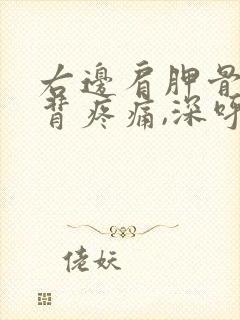 右邊肩胛骨
背疼痛,深呼
佬妖